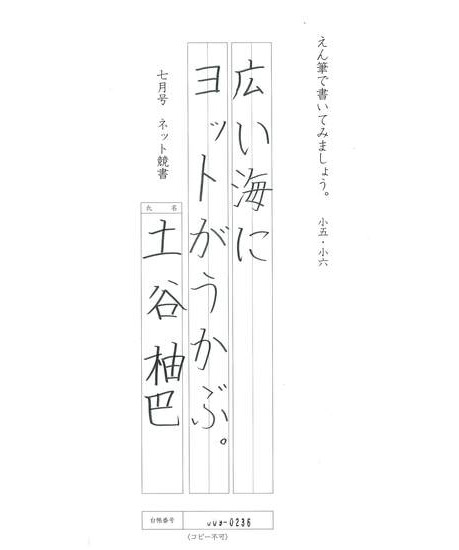 えん筆で書いてみましょう。 小五・小六
広い海に
ヨットがうかぶ。
七月号 ネット競書
氏名
土谷柚巴
台帳番号
0236
(コピー不可)